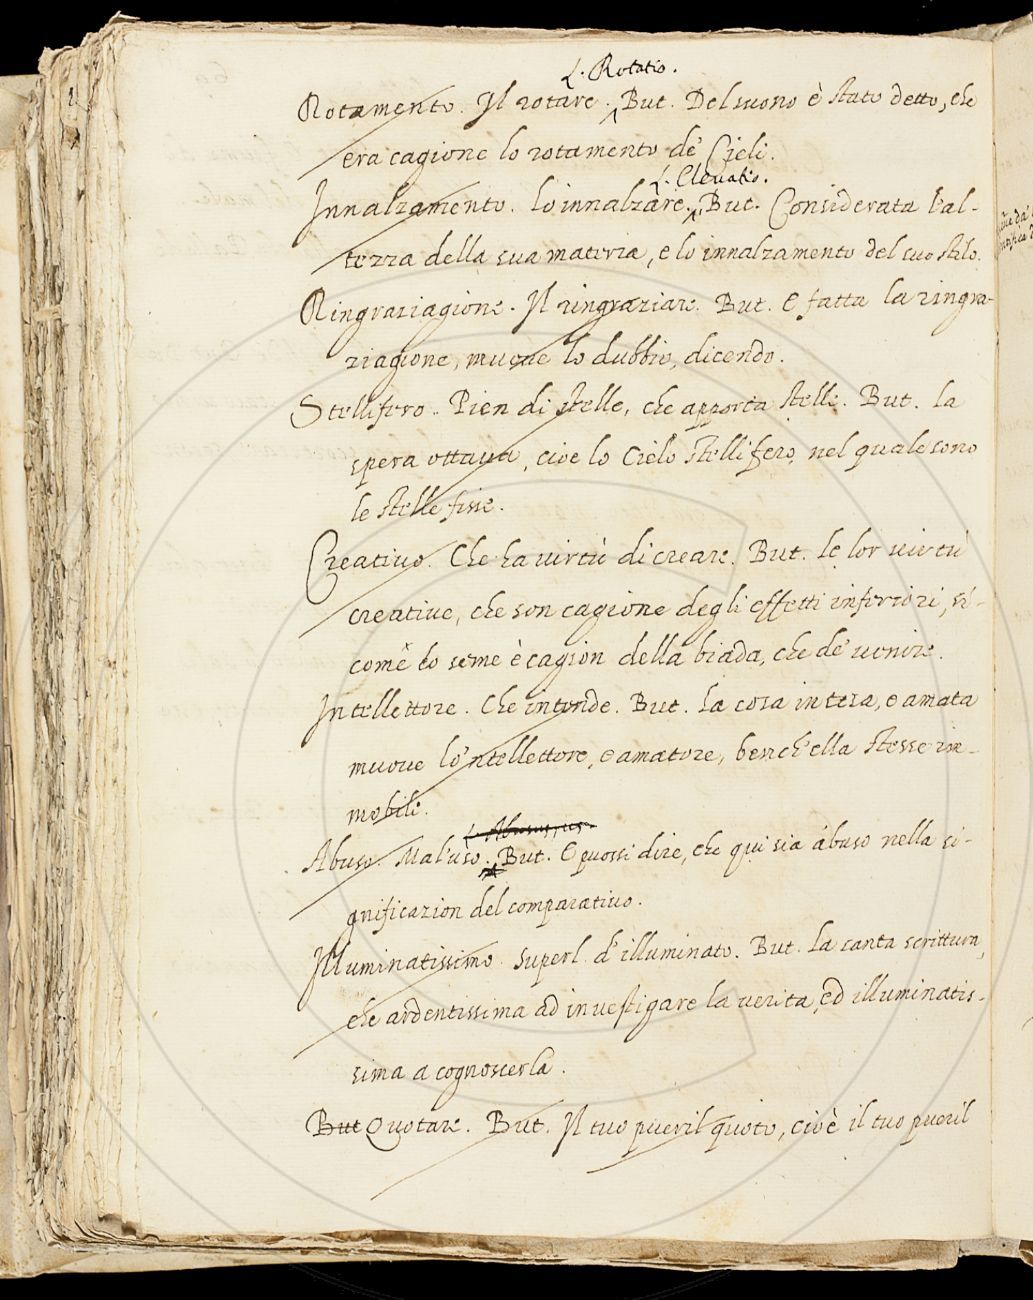 L. Rotatio.
Rotamento. Il rotare. But. Del suono è stato detto, che
era cagione lo rotamento de' Cieli.
L. Elevatio.
Innalzamento. Lo innalzare. But. Considerata l'al-
tezza della sua materia, e lo innalzamento del suo stilo.
Ringraziagione. Il ringraziare. But. E fatta la ringra-
ziagione, muove lo dubbio, dicendo.
Stellifero. Pien di stelle, che apporta stelle. But. La
spera ottava, cioe lo Cielo stellifero, nel quale sono
le stelle fisse.
Creativo. Che ha virtù di creare. But. Le lor virtù
creative, che son cagione degli effetti inferiori, si-
come lo seme è cagion della biada, che de' venire.
Intellettore. Che intende. But. La cosa intesa, e amata
muove lo 'ntellettore, e amatore, bench'ella stesse im-
mobile.
L. Abusus, us.
Abuso. Mal'uso. But. E puossi dire, che qui sia abuso nella si-
gnificazion del comparativo.
Illuminatissimo. Superl. d'illuminato. But. La santa scrittura,
che ardentissima ad investigare la verita, ed illuminatis-
sima a cognoscerla.
But Quotare. But. Il tuo pueril quoto, cioè il tuo pueril